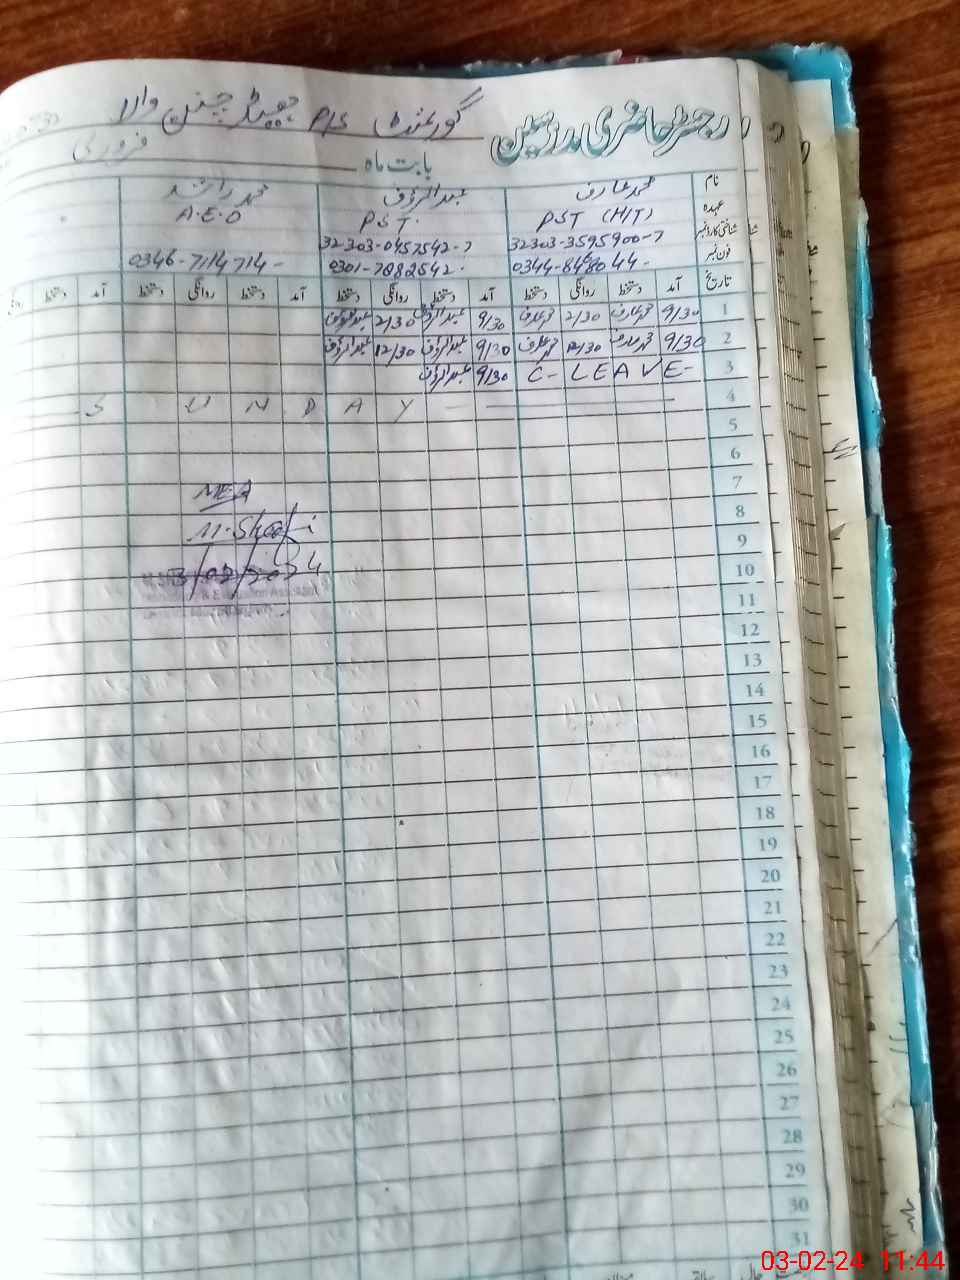 رجسٹر حاضری مدرسین گورنمنٹ P/S چنن والا
بابت ماہ فروری
نام محمد عارف عبدالرؤف محمد راشد
عہدہ PST (H/T) PST. A.E.O
شناختی کارڈ نمبر 32303-3595900-7 32303-0457542-7
فون نمبر 0344-8480 44- 0301-7882542. 0346-7114714-
تاریخ آمد دستخط روانگی دستخط آمد دستخط روانگی دستخط آمد دستخط روانگی دستخط آمد دستخط
1 9/30 محمد عارف 2/30 محمد عارف 9/30 عبدالرؤف 2/30 عبدالرؤف
2 9/30 محمد عارف 12/30 محمد عارف 9/30 عبدالرؤف 12/30 عبدالرؤف
3 C-LEAVE- 9/30 عبدالرؤف
4 SUNDAY
5
6
7
8
9
10
11
12
13
14
15
16
17
18
19
20
21
22
23
24
25
26
27
28
29
30
31
MEA
M.Shafi
3/02/2024
03-02-24 11:44